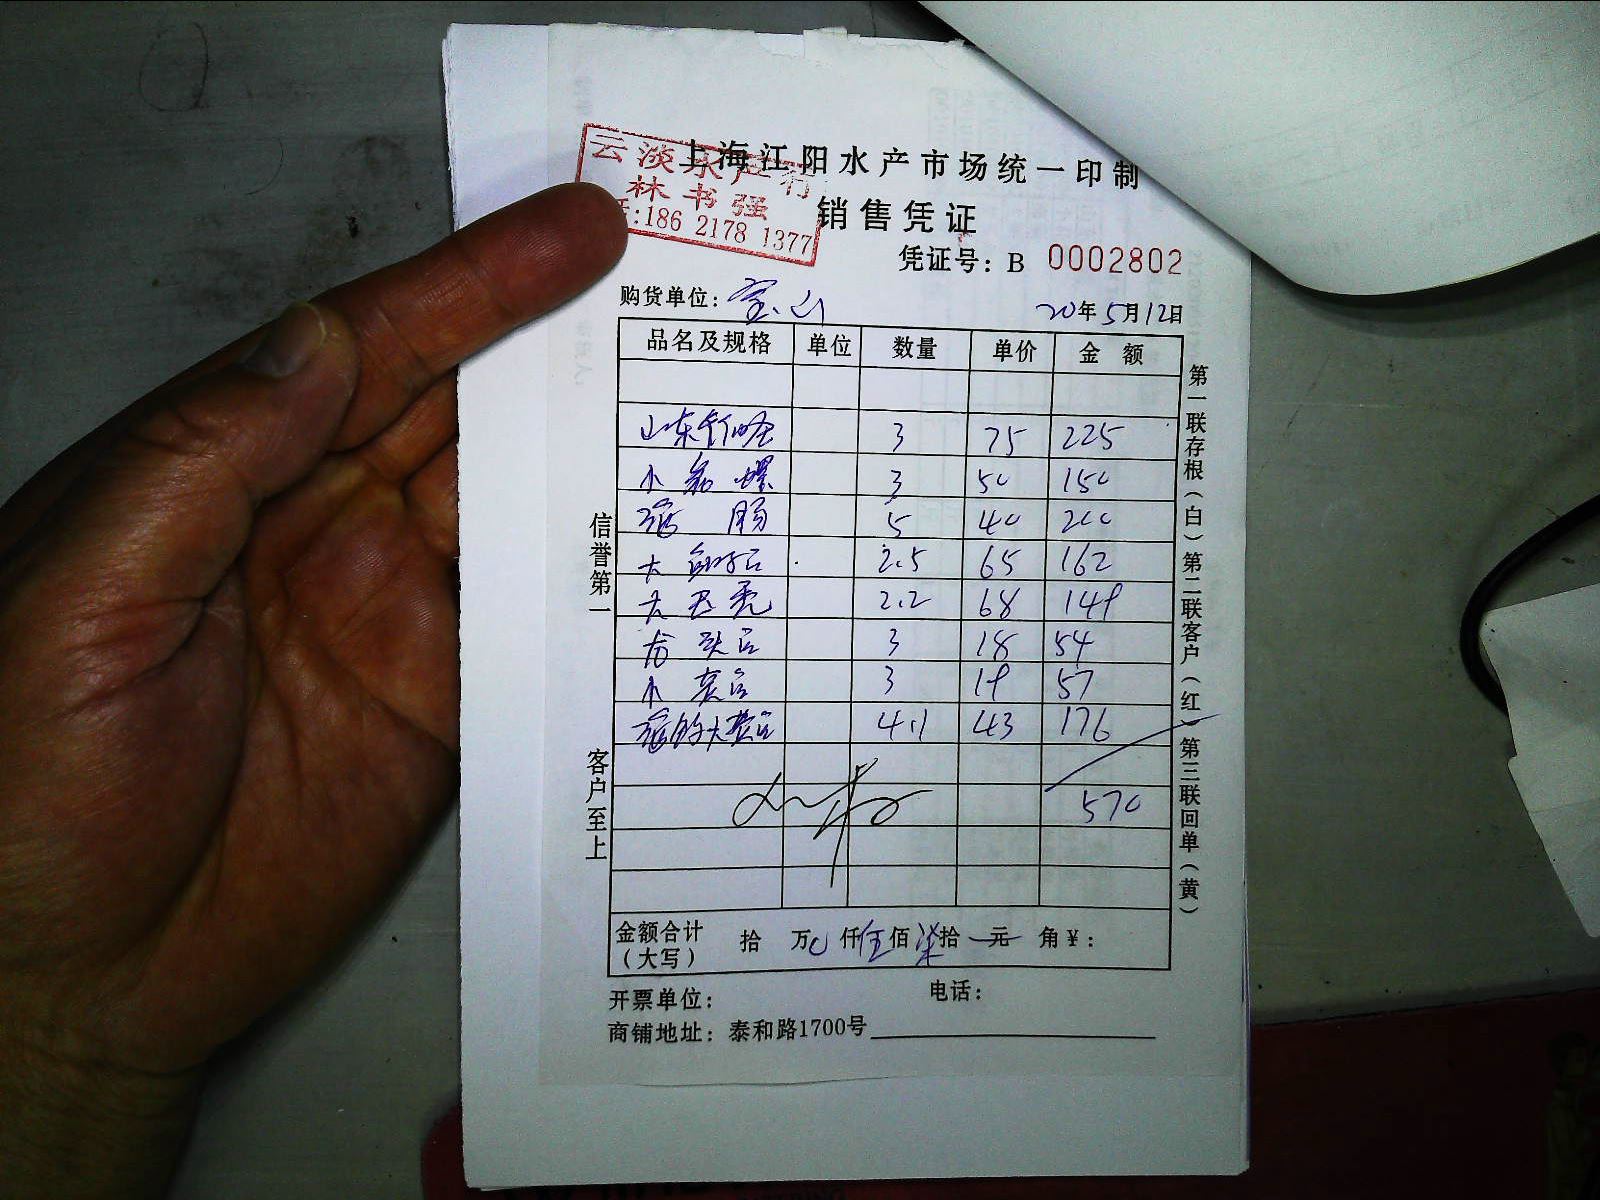 云淡水产行
林书强
:186 2178 1377
上海江阳水产市场统一印制
销售凭证
凭证号：B 0002802
购货单位：宝山
20年5月12日
品名及规格 单位 数量 单价 金额
山东 3 75 225
小 螺 3 50 150
肠 5 40 200
大 2.5 65 162
大 2.2 68 149
3 18 54
小 3 19 57
大 4.1 43 176
570
金额合计（大写） 拾 万 0 仟 伍 佰 柒 拾 元 角 ¥：
开票单位： 电话：
商铺地址：泰和路1700号
信誉第一
客户至上
第一联存根（白）第二联客户（红）第三联回单（黄）